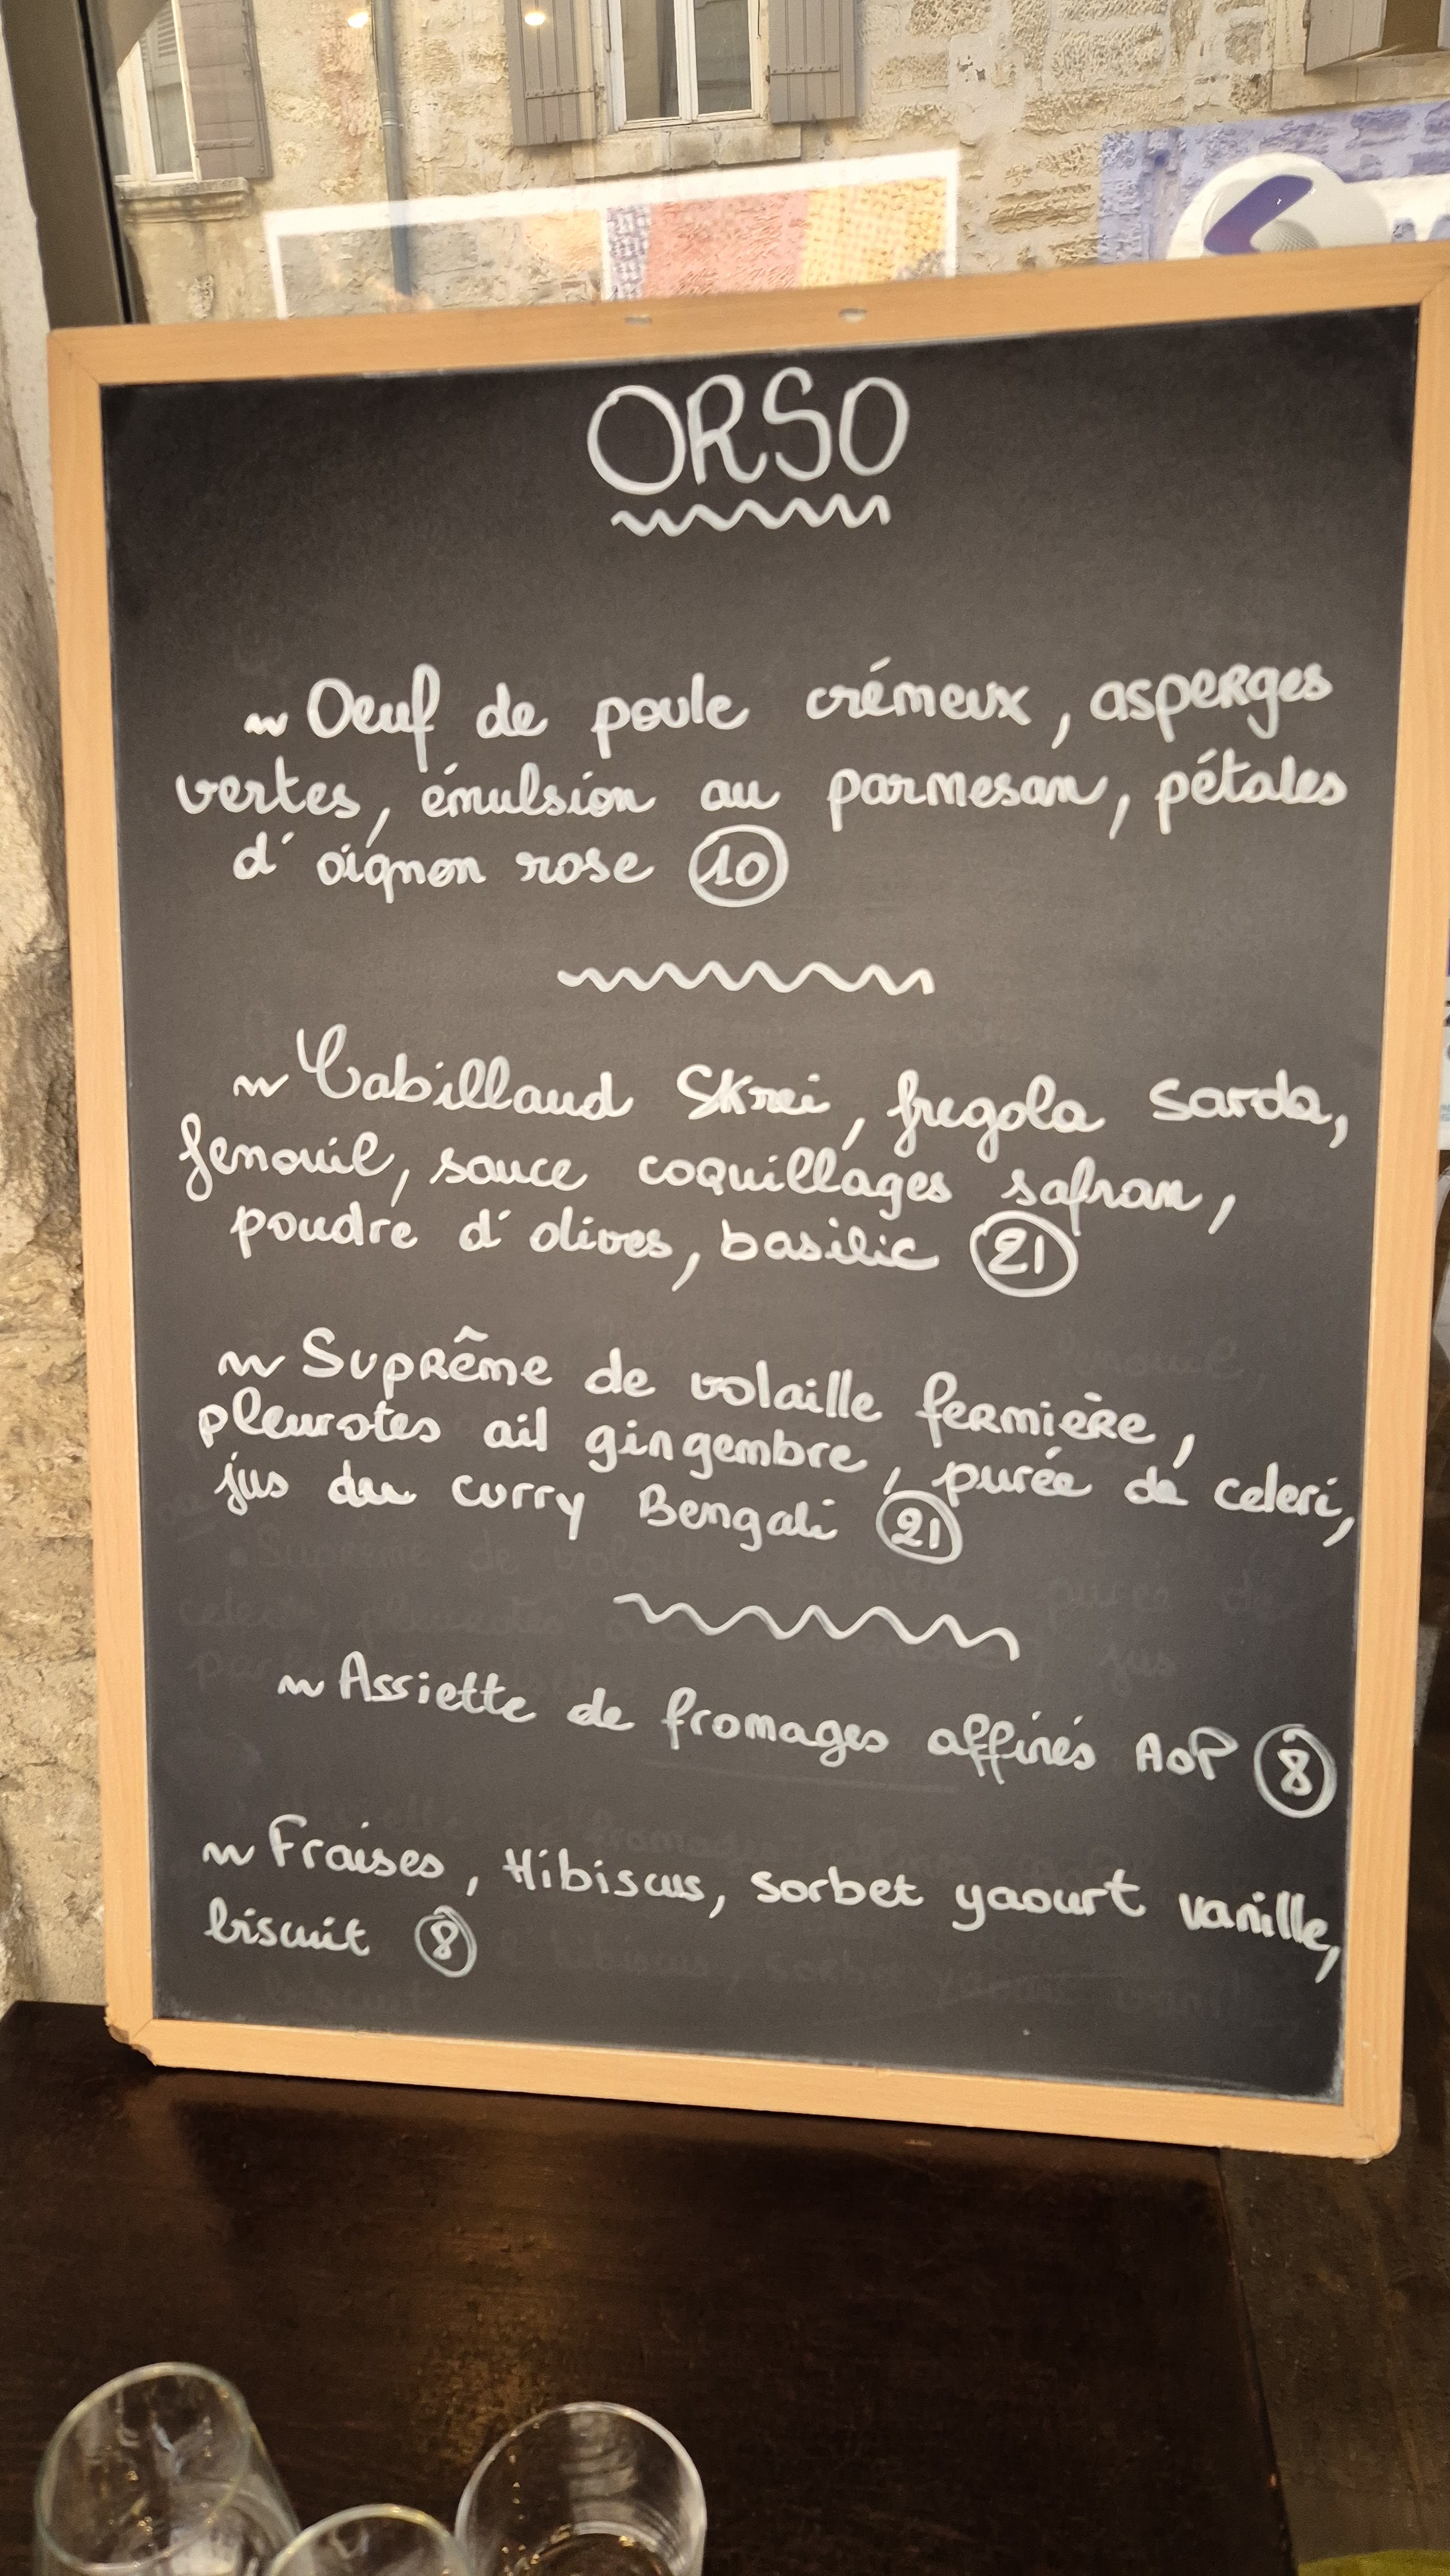 ORSO
Oeuf de poule crémeux, asperges
vertes, émulsion au parmesan, pétales
d'oignon rose 10
Cabillaud Skrei, fregola sarda,
fenouil, sauce coquillages safran,
poudre d'olives, basilic 21
Suprême de volaille fermière,
pleurotes ail gingembre, purée de celeri,
jus au curry Bengali 21
Assiette de fromages affinés AOP 8
Fraises, Hibiscus, sorbet yaourt vanille,
biscuit 8